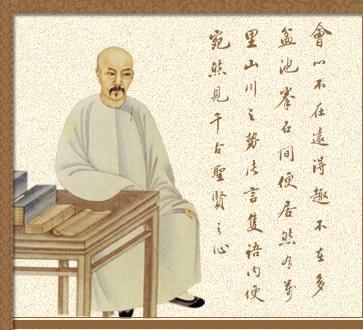 會心不在遠得趣不在多
盆池拳石間便居然有萬
里山川之勢片言隻語內便
宛然見千古聖賢之心